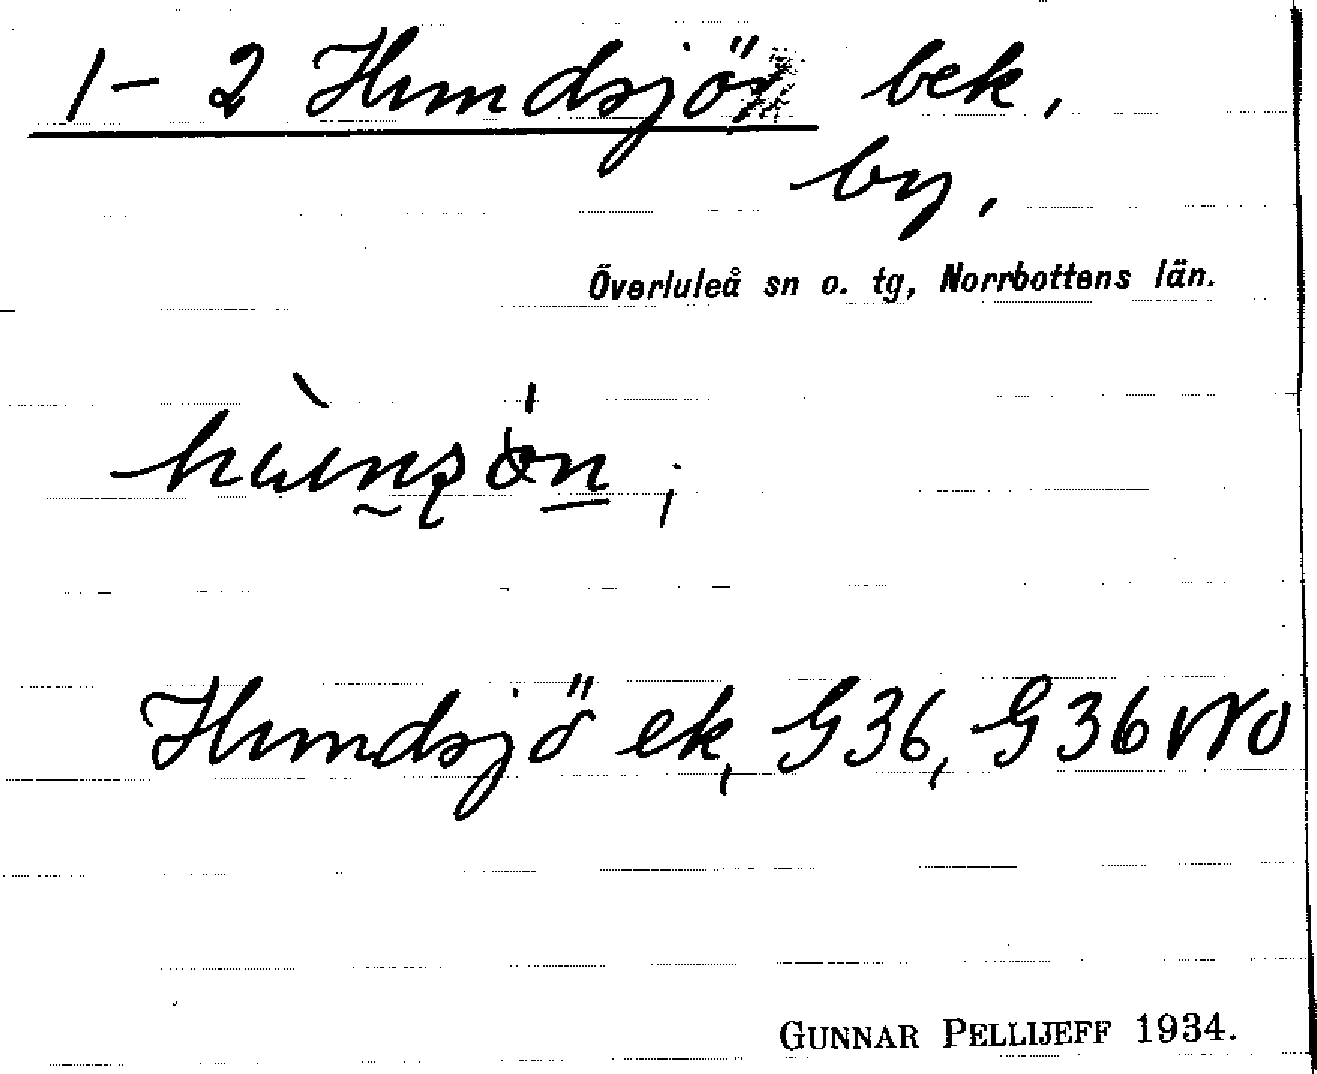 1-2 Hundsjön bek.
by.
Överluleå sn o. tg, Norrbottens län.
Hundsjö ek, G36, G36 NO
GUNNAR PELLIJEFF 1934.